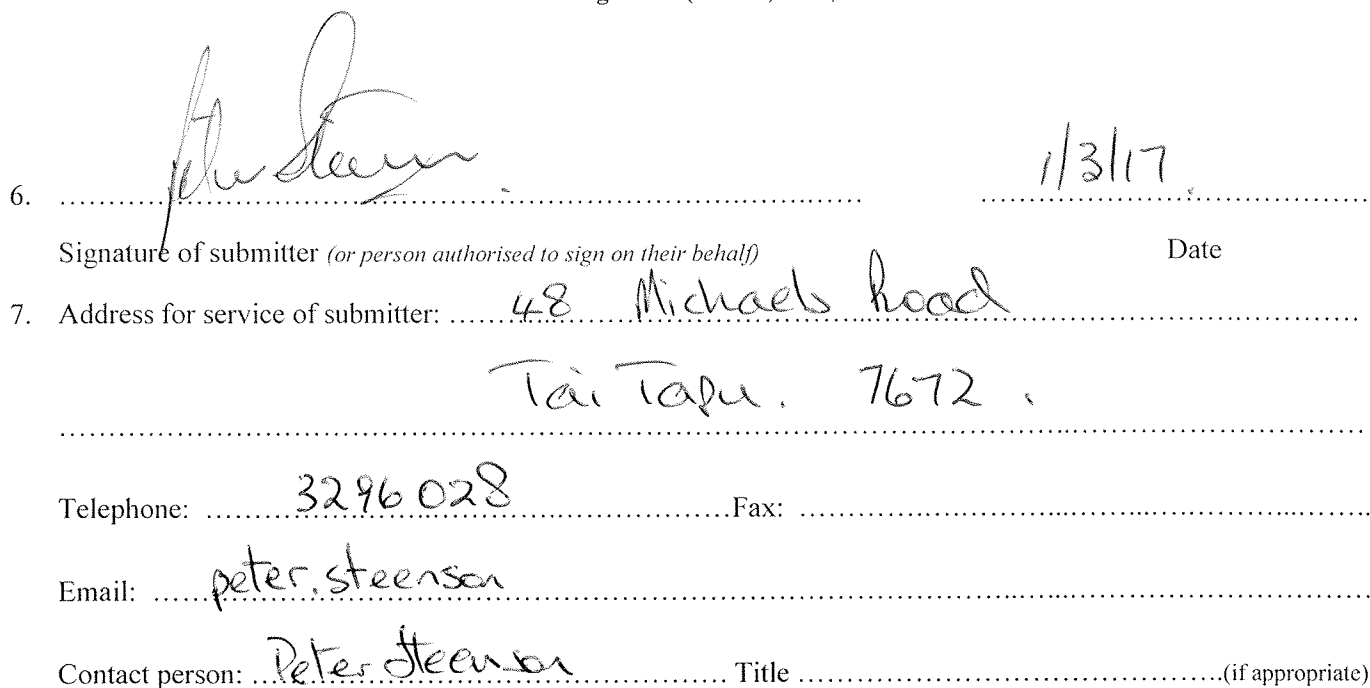 6. Peter Steenson 1/3/17
Signature of submitter (or person authorised to sign on their behalf) Date
7. Address for service of submitter: 48 Michaels Road
Tai Tapu. 7672.
Telephone: 3296028 Fax:
Email: peter.steenson
Contact person: Peter Steenson Title (if appropriate)